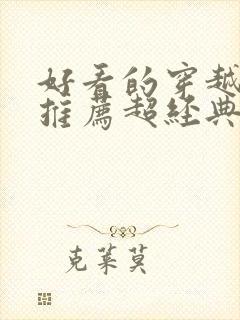 好看的穿越
推薦超經典
克萊莫